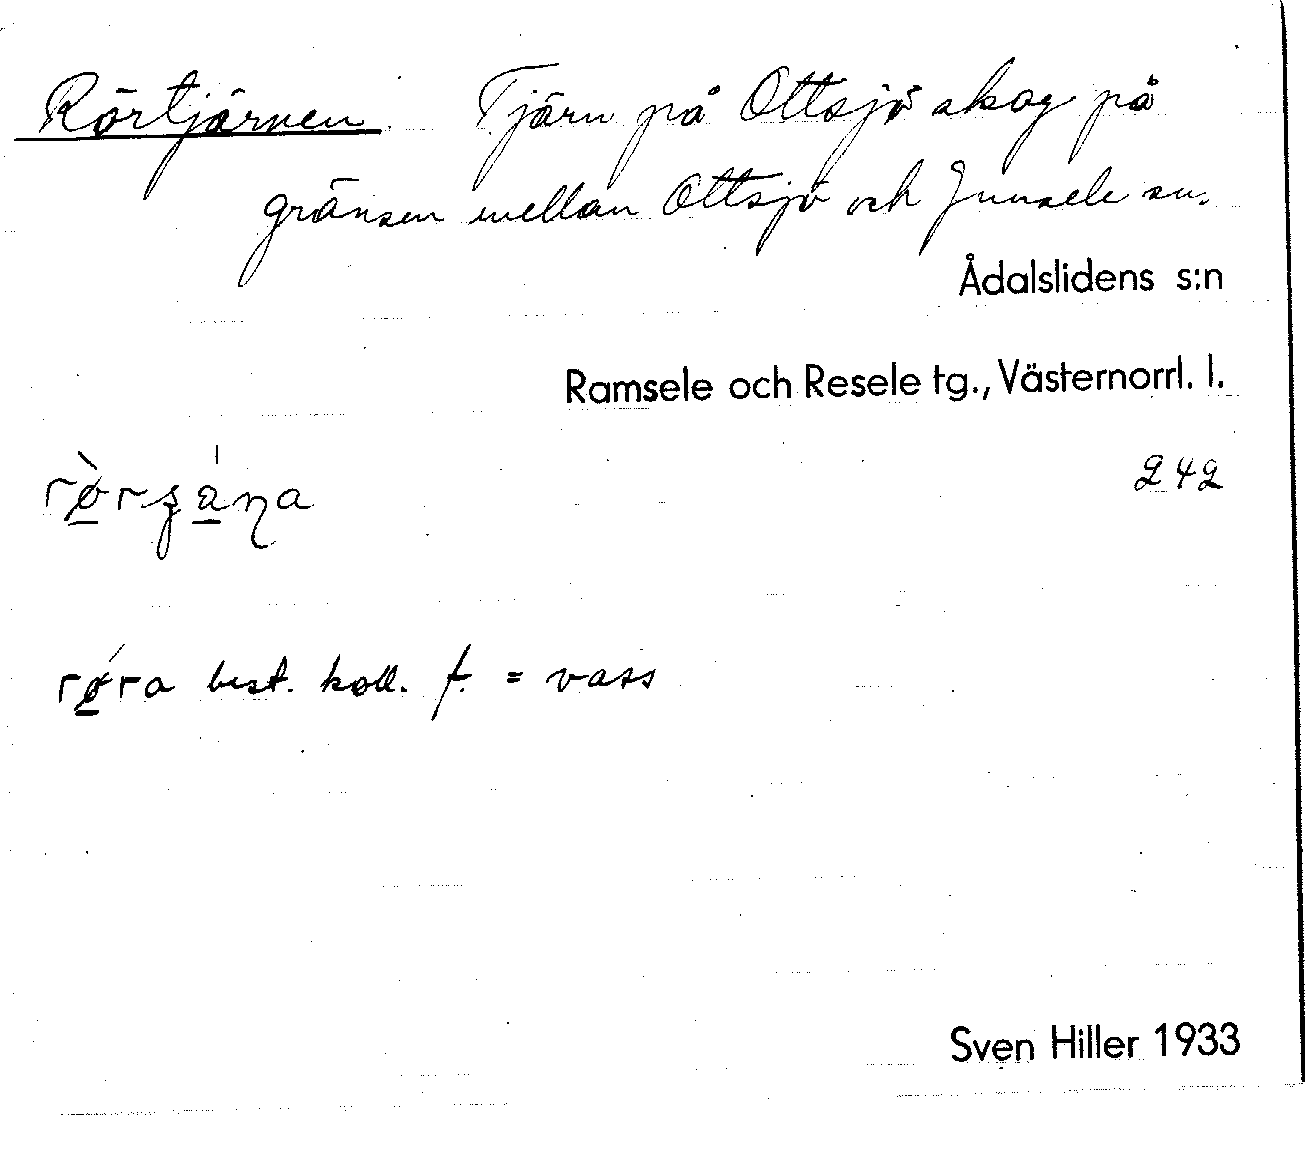 Rörtjärnen. Tjärn på Ottsjö skog på
gränsen mellan Ottsjö och Junsele sn.
Ådalslidens s:n
Ramsele och Resele tg., Västernorrl. l.
242
rø̀ra best. koll. f. = vass
Sven Hiller 1933